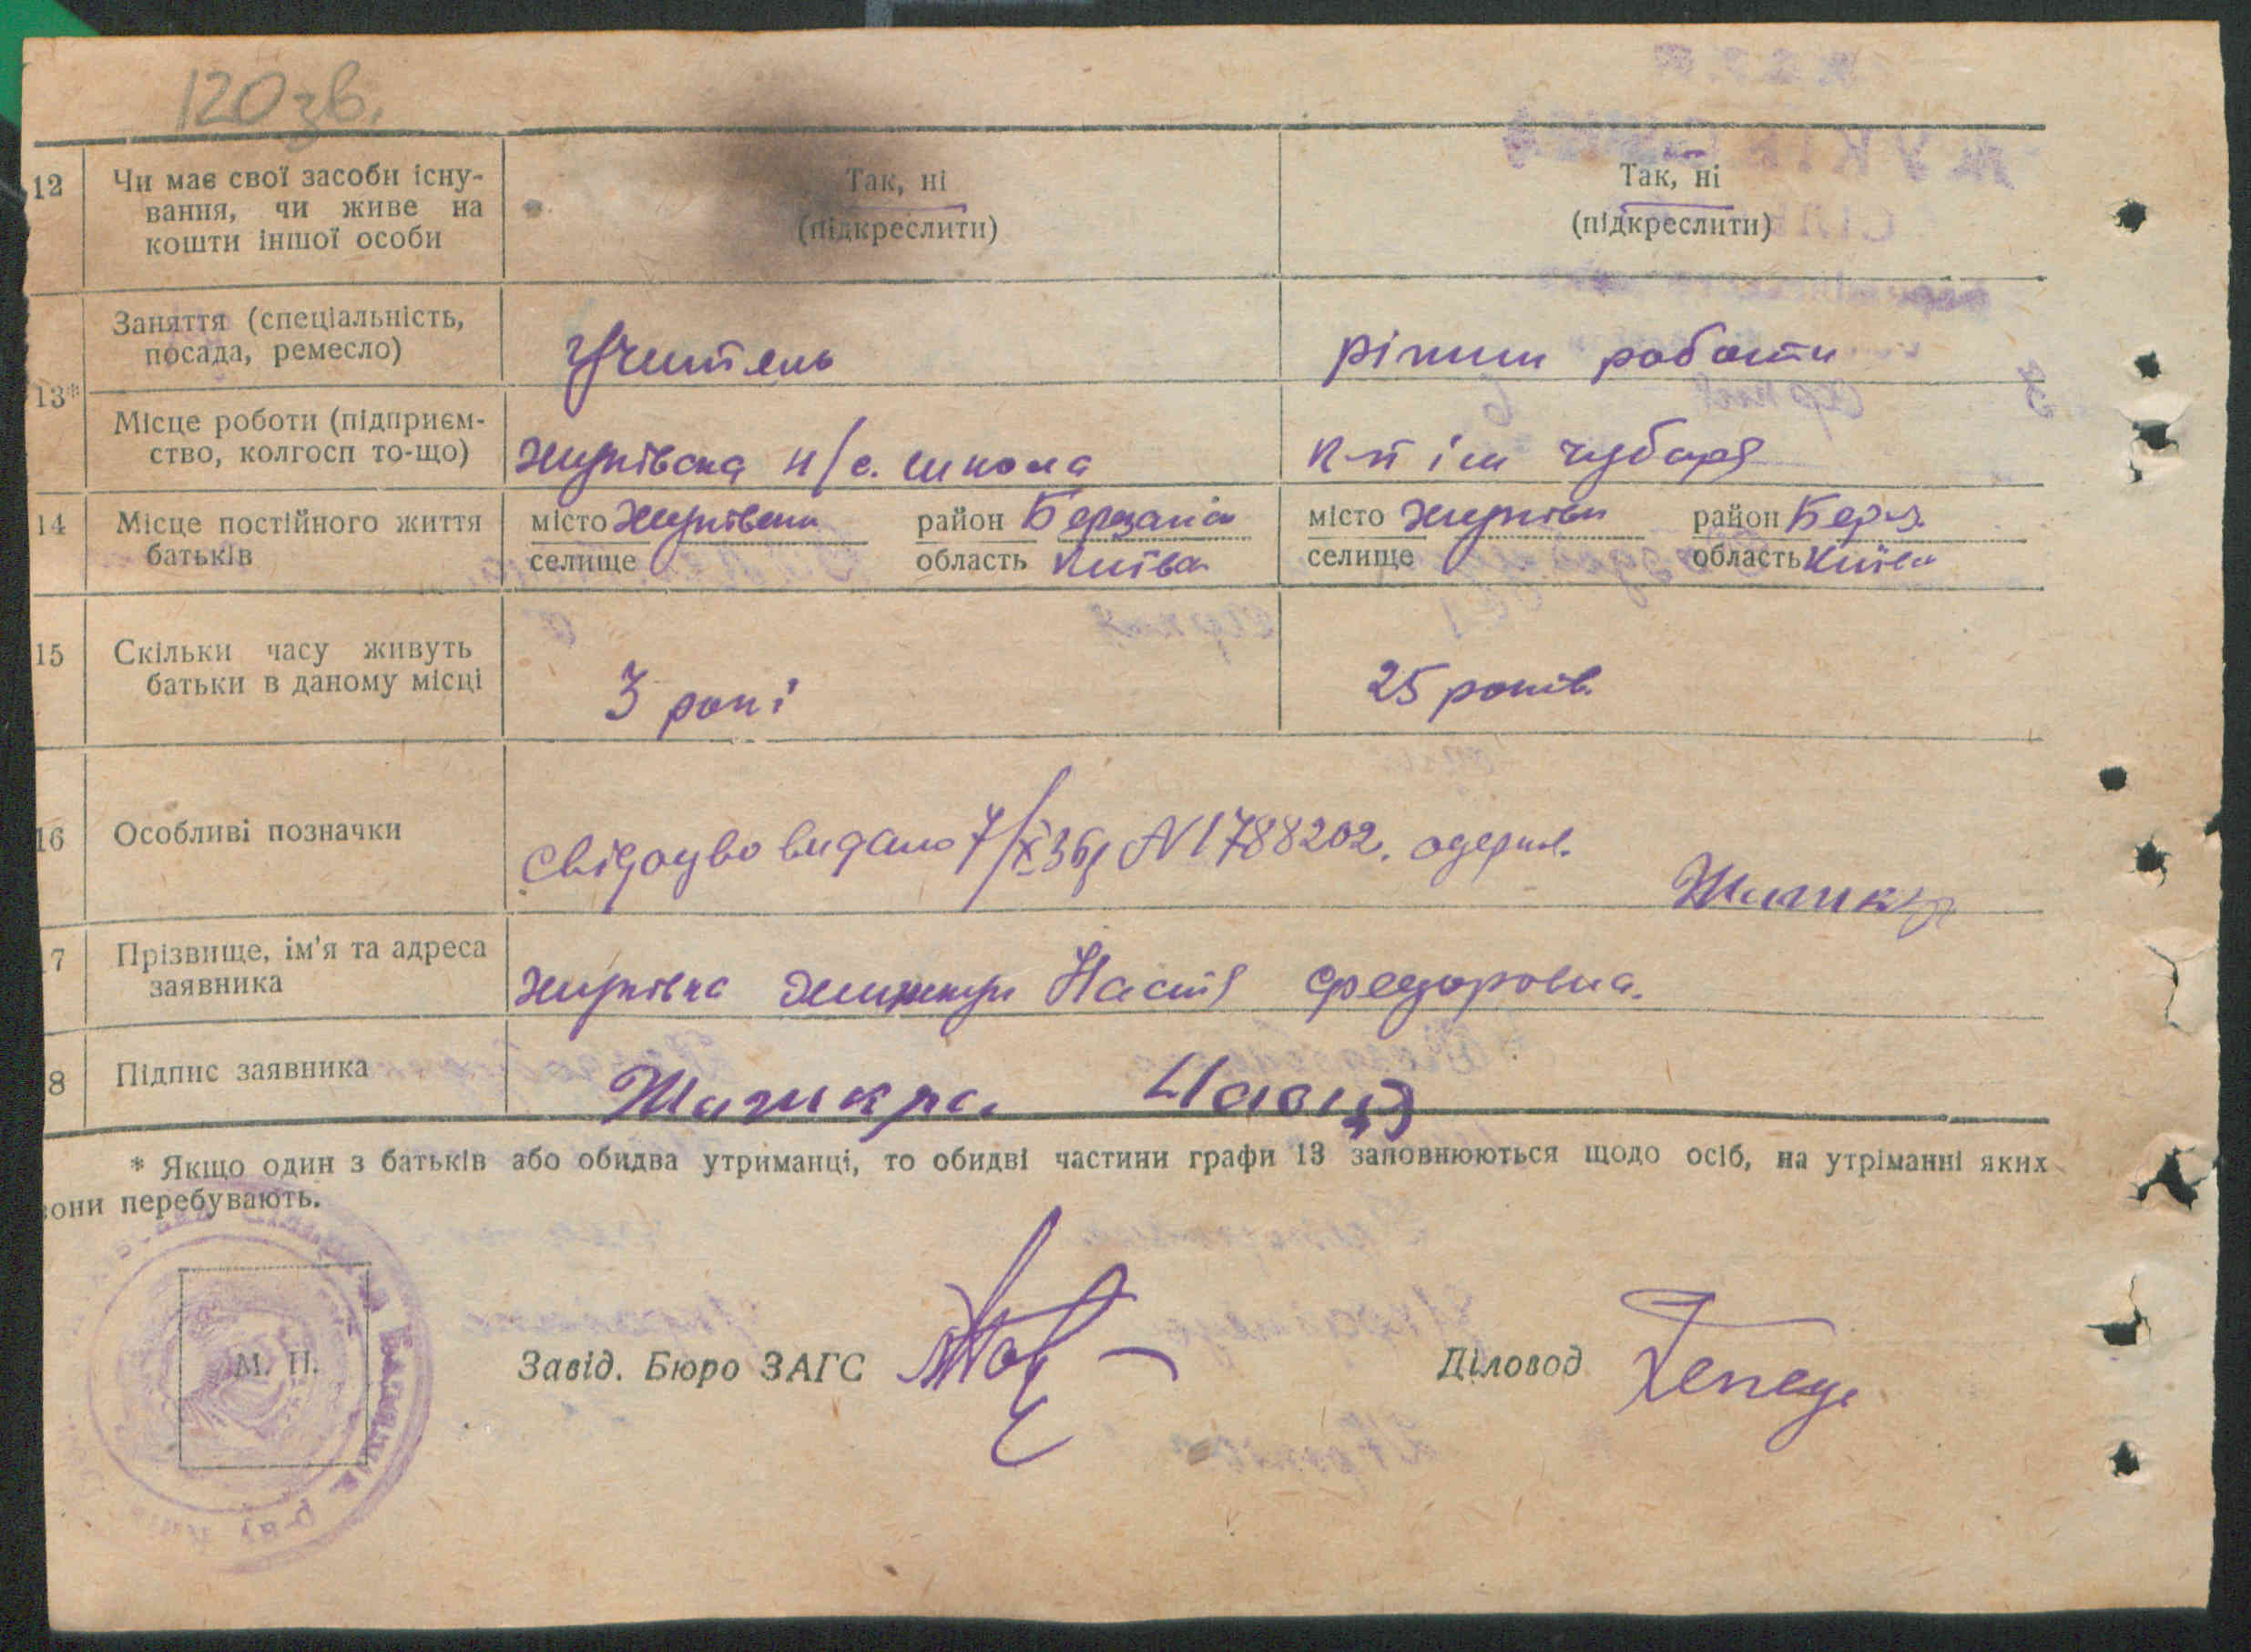 120зв.
12 Чи має свої засоби існу-
вання, чи живе на
кошти іншої особи
Так, ні
(підкреслити)
Так, ні
(підкреслити)
13*
Заняття (спеціальність,
посада, ремесло)
Учитель
різний роботи
Місце роботи (підприєм-
ство, колгосп то-що)
Жуківска н/с. школа
к-п ім Чубаря
14 Місце постійного життя
батьків
місто Жуківка район Березань
селище область Київа
місто Жуківки район Берз.
селище область Київа
15 Скільки часу живуть
батьки в даному місці
3 рокі
25 років.
16 Особливі позначки
Свідоцво видано 7/X 36р N 1788202. одержл.
7 Прізвище, ім'я та адреса
заявника
Жуківка Настя Федоровна.
8 Підпис заявника
* Якщо один з батьків або обидва утриманці, то обидві частини графи 13 заповнюються щодо осіб, на утріманні яких
вони перебувають.
М. П.
Завід. Бюро ЗАГС
Діловод